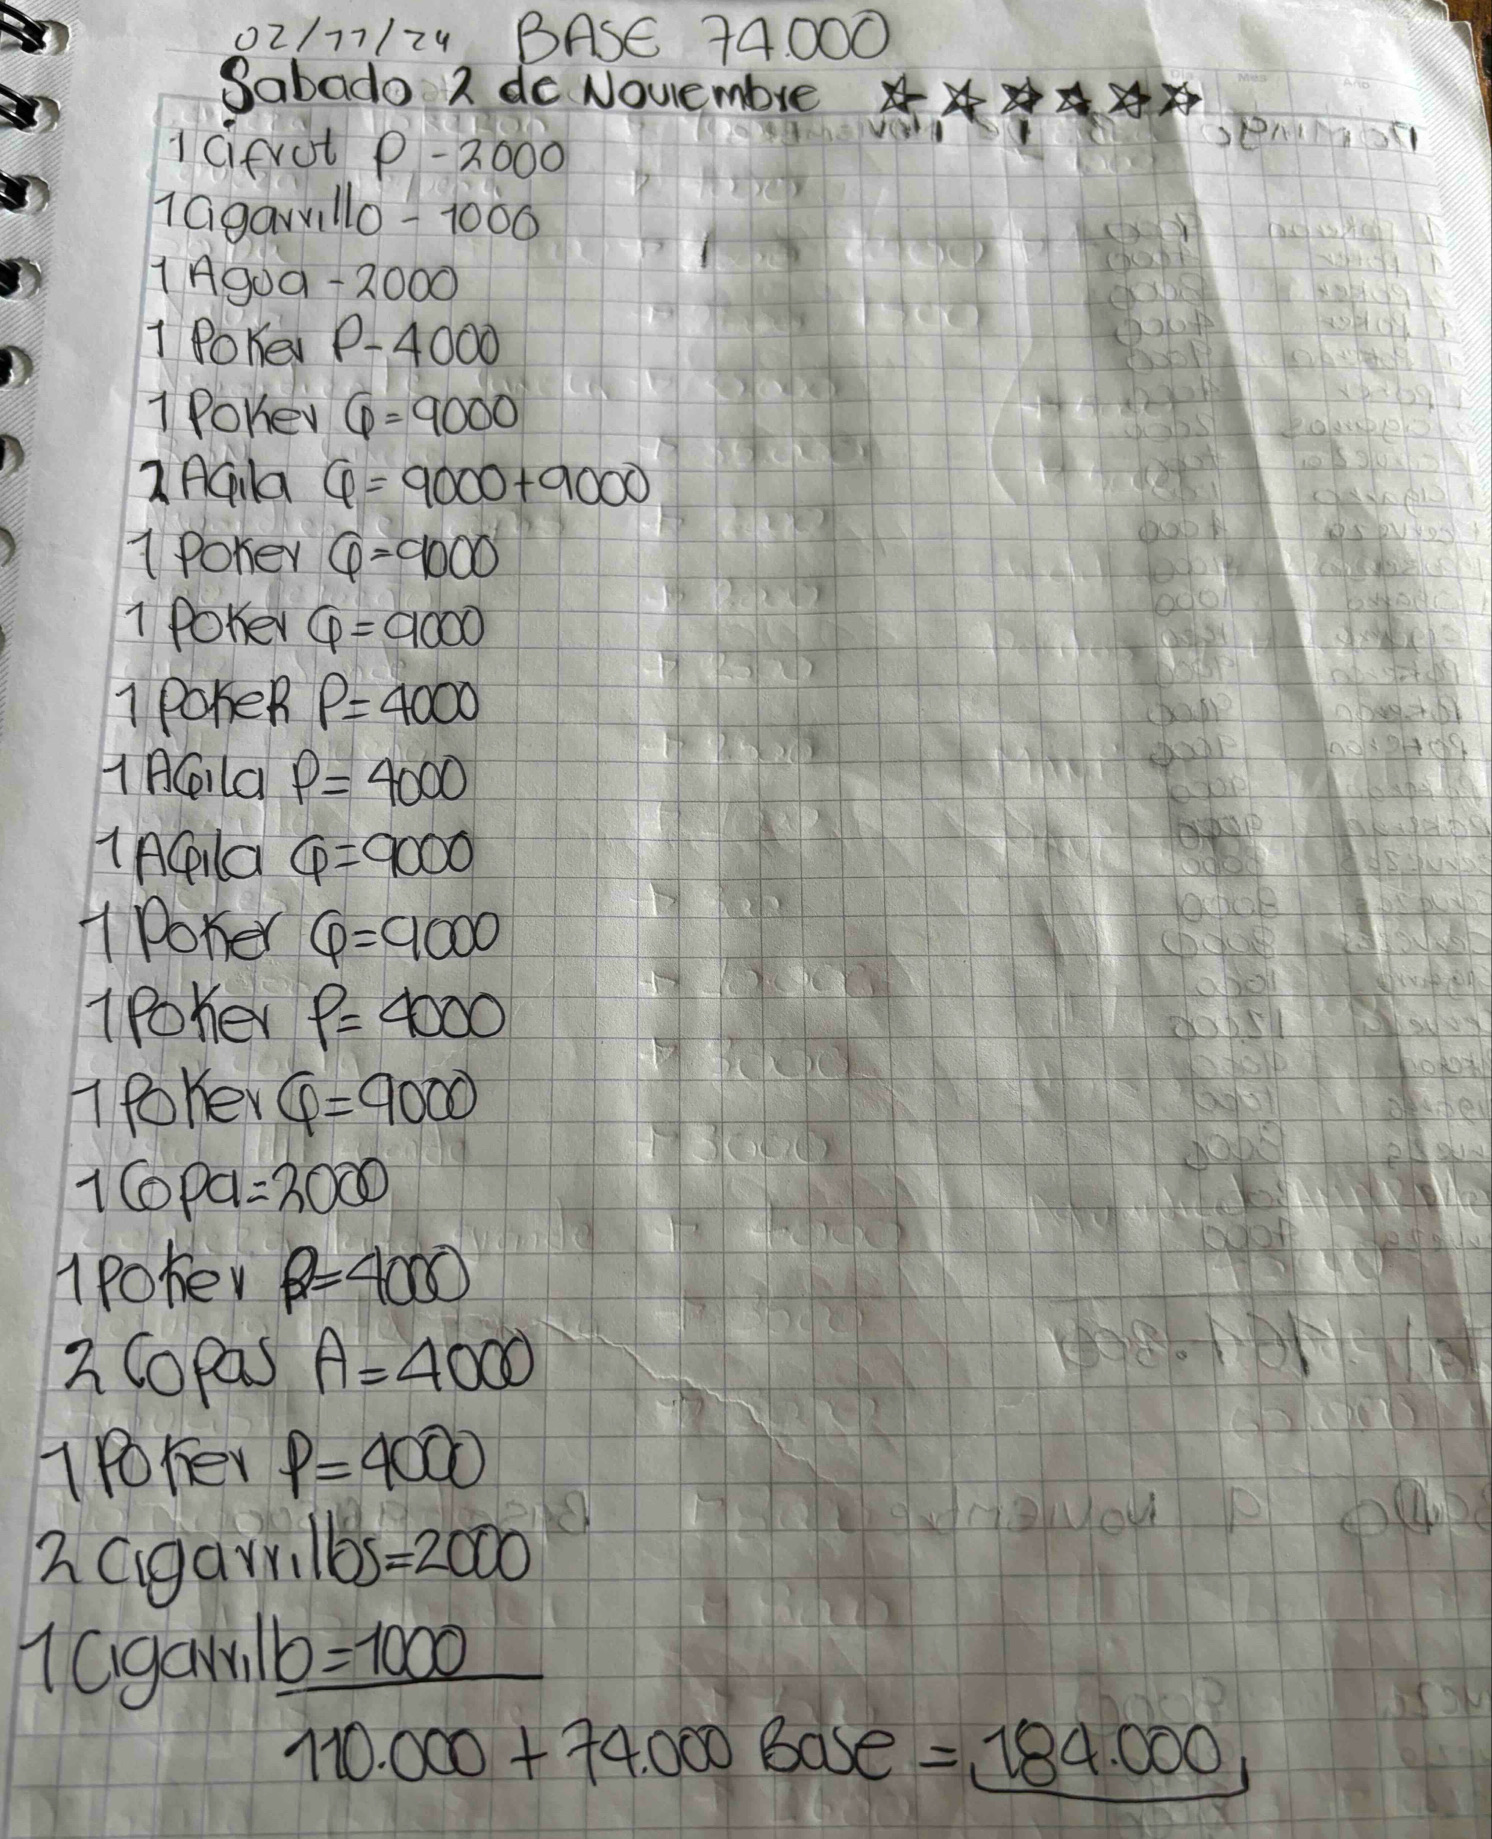 02/11/24 BASE 74.000
Sabado 2 de Noviembre
1 Cifrut P - 2000
1 Cigarrillo - 1000
1 Agua - 2000
1 Poker P - 4000
1 Poker G = 9000
2 AGila G = 9000 + 9000
1 Poker G = 9000
1 Poker G = 9000
1 PokeR P = 4000
1 AGila P = 4000
1 AGila G = 9000
1 Poker G = 9000
1 Poker P = 4000
1 Poker G = 9000
1 Copa = 2000
1 Poker P = 4000
2 Copas A = 4000
1 Poker P = 4000
2 Cigarrillos = 2000
1 Cigarrillo = 1000
110.000 + 74.000 Base = 184.000